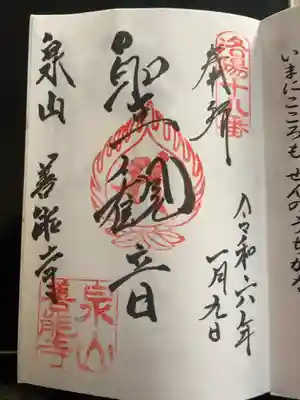 いまにこころもせんのつちかな
洛陽十八番
奉拝
令和六年
一月九日
聖観音
泉山 善能寺
泉山
善能寺